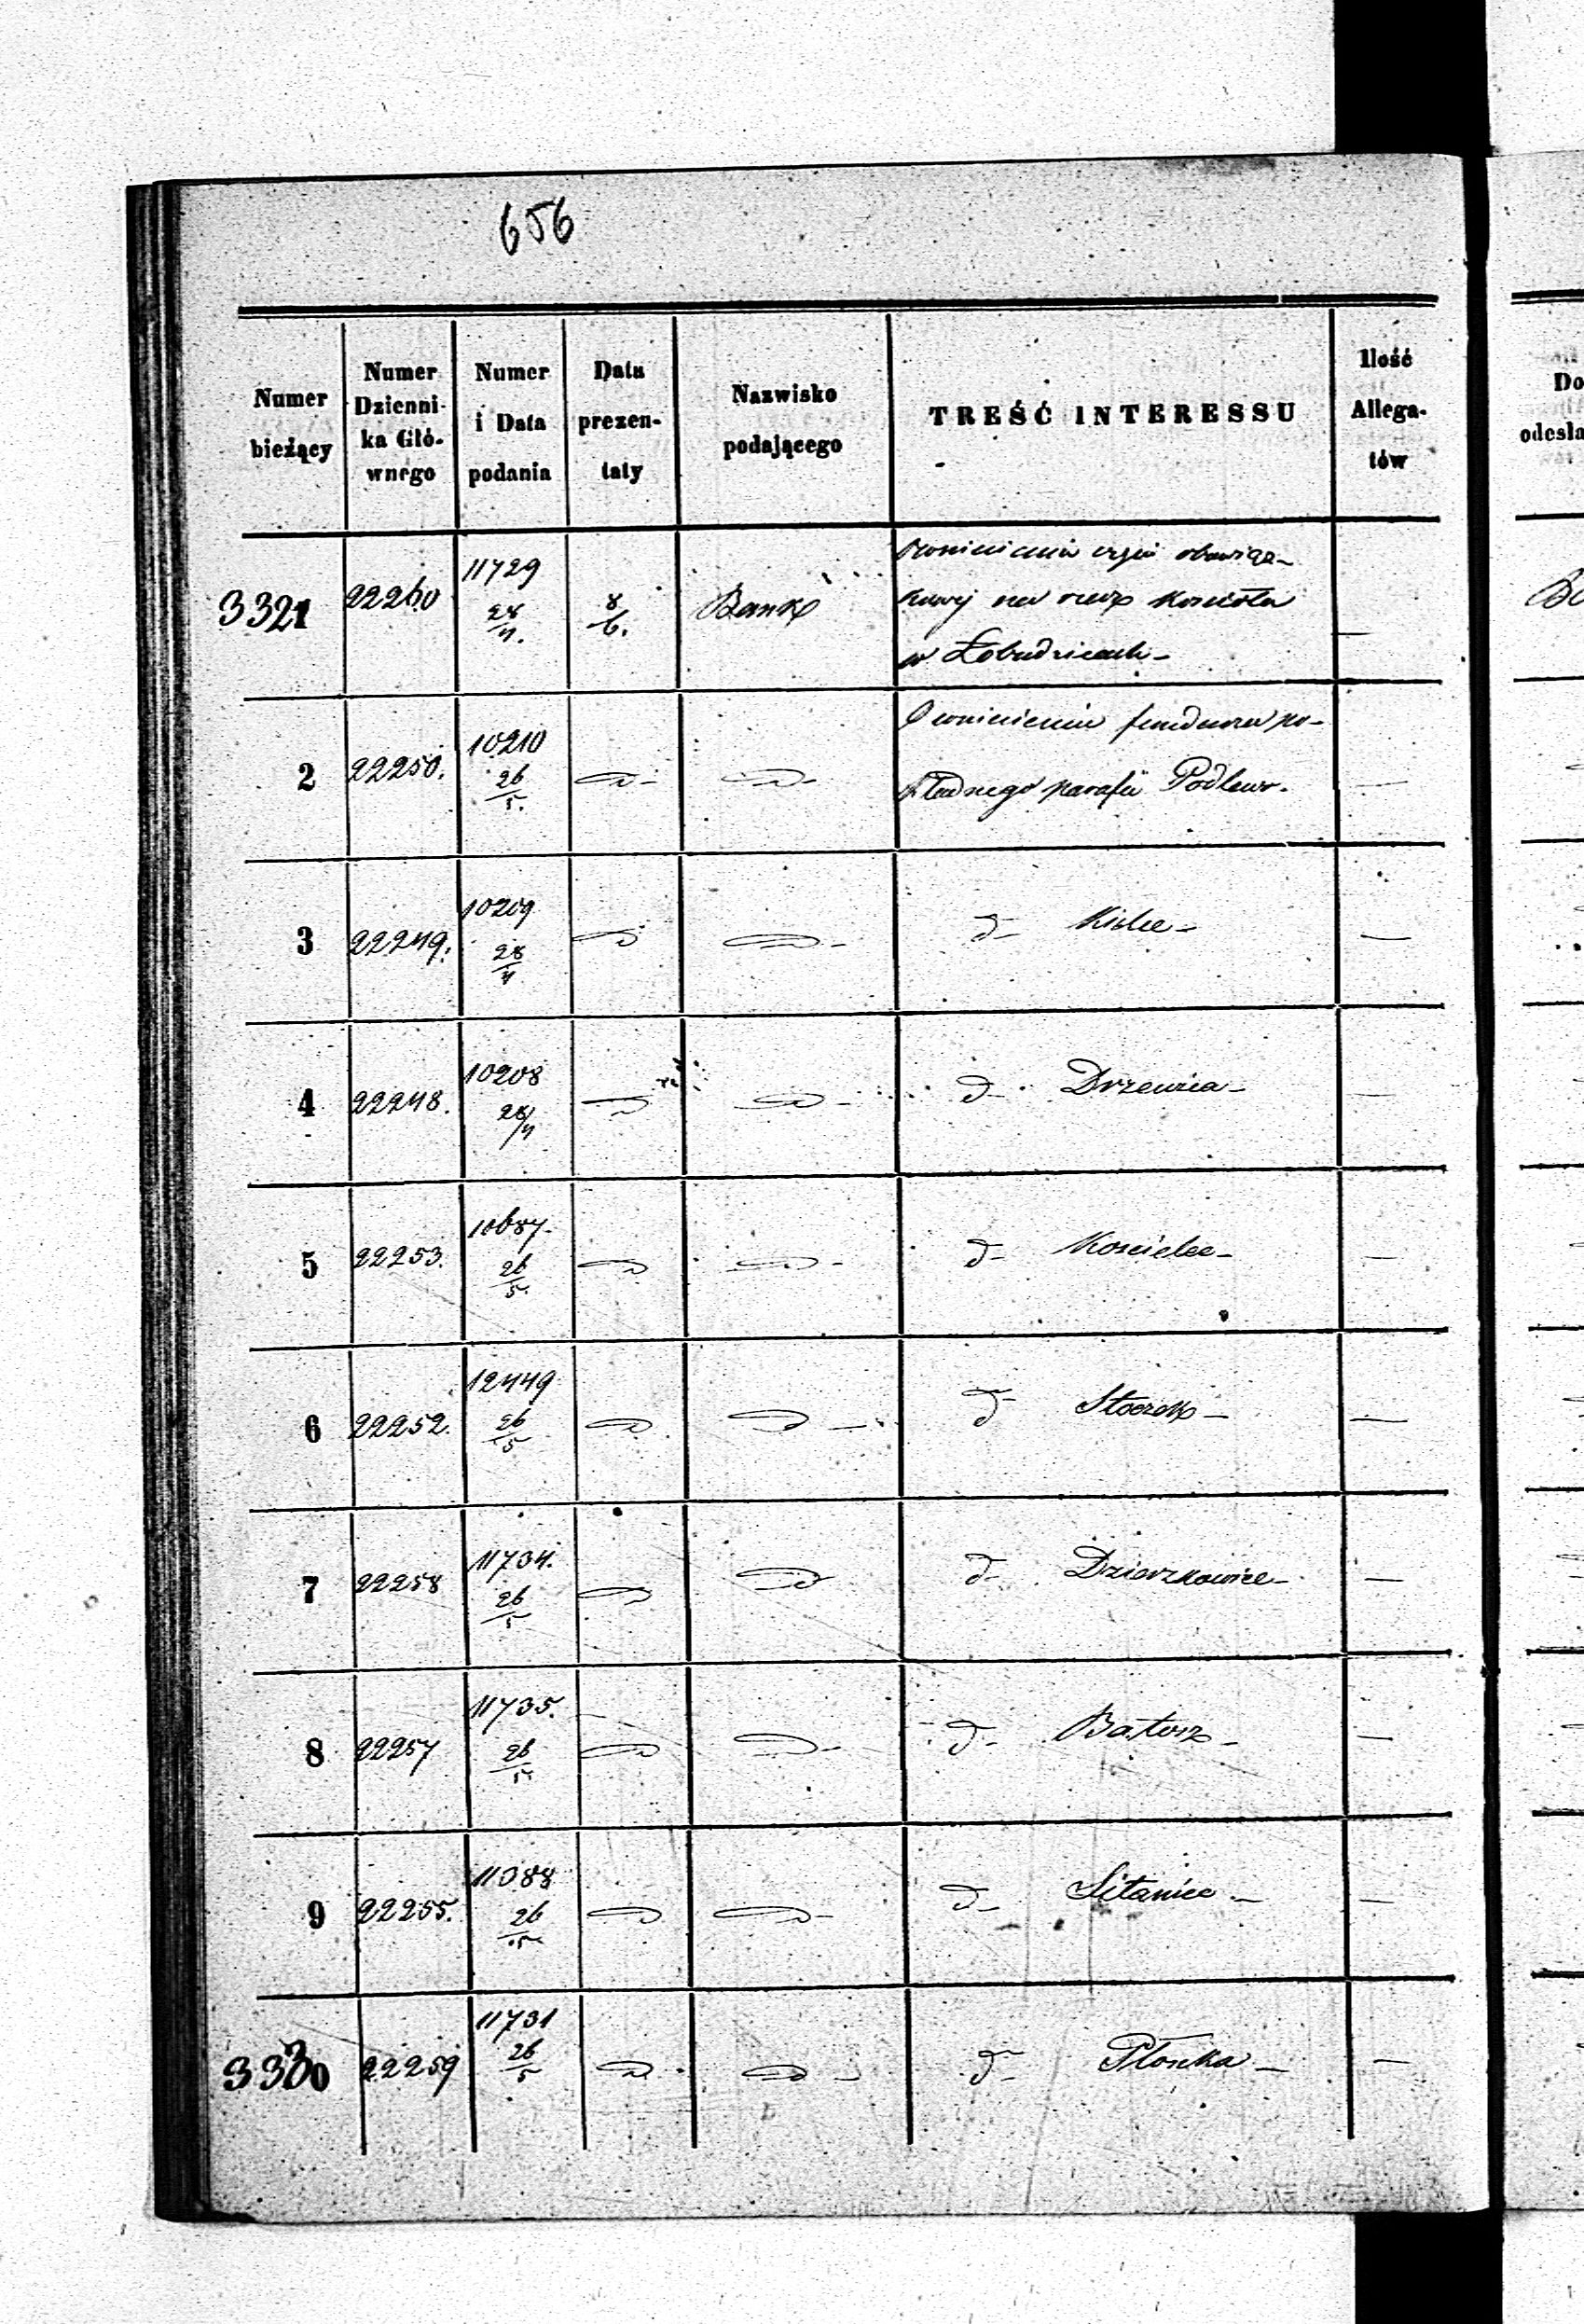 656
Numer bieżący
Numer Dzienni-ka Głó-wnego
Numer i Data podania
Data prezen-taty
Nazwisko podającego
TREŚĆ INTERESSU
Ilość Allega-tów
Do odesła
3321 22260 11729 28/4. 8/6. Bank
obowiąz-
kowej na rzecz Kościoła
w Łobudzicach —
2 22250. 10210 26/5. d d
O wniesieniu funduszu po-
kładnego parafii Podlew.
3 22249. 10209 28/4 d d d Kielce —
4 22248. 10208 28/4 d d d Drzewica —
5 22253. 10687. 26/5. d d d Kościelec —
6 22252. 12449 26/5 d d d Stoczek —
7 22258 11734. 26/5 d d d Dzierzkowice —
8 22257 11735. 26/5 d d d Batorz —
9 22255. 11388 26/5 d d d Sitaniec —
3330 22259 11731 26/5 d d d Płonka —